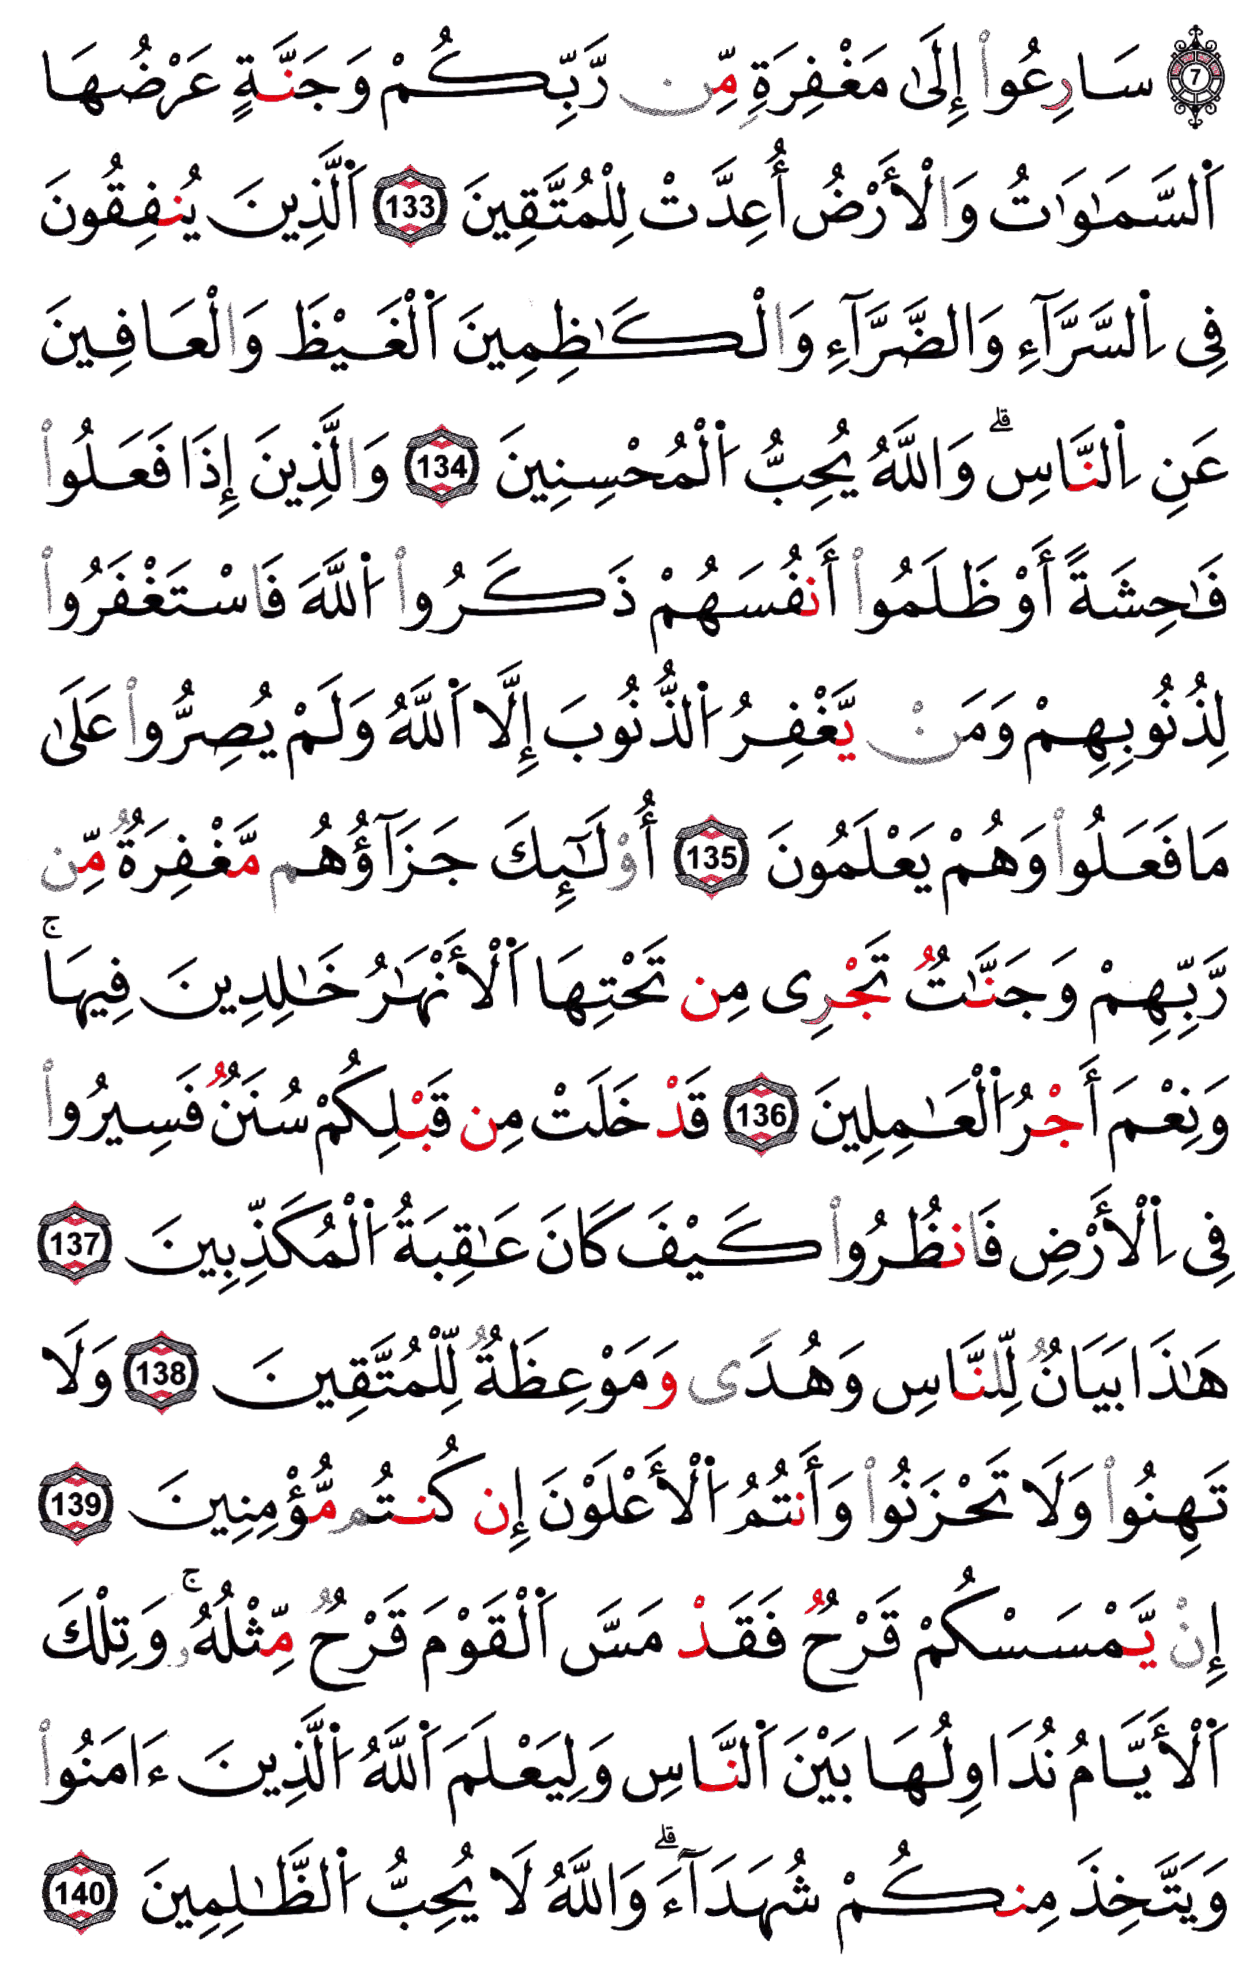 7 سَارِعُواْ إِلَىٰ مَغْفِرَةٖ مِّن رَّبِّكُمْ وَجَنَّةٍ عَرْضُهَا
اَ۬لسَّمَٰوَٰتُ وَالْأَرْضُ أُعِدَّتْ لِلْمُتَّقِينَ 133 اَ۬لَّذِينَ يُنفِقُونَ
فِى اِ۬لسَّرَّآءِ وَالضَّرَّآءِ وَالْكَٰظِمِينَ اَ۬لْغَيْظَ وَالْعَافِينَ
عَنِ اِ۬لنَّاسِۗ وَاللَّهُ يُحِبُّ اُ۬لْمُحْسِنِينَ 134 وَالَّذِينَ إِذَا فَعَلُواْ
فَٰحِشَةً أَوْ ظَلَمُواْ أَنفُسَهُمْ ذَكَرُواْ اُ۬للَّهَ فَاسْتَغْفَرُواْ
لِذُنُوبِهِمْ وَمَنْ يَّغْفِرُ اُ۬لذُّنُوبَ إِلَّا اَ۬للَّهُ وَلَمْ يُصِرُّواْ عَلَىٰ
مَا فَعَلُواْ وَهُمْ يَعْلَمُونَ 135 أُوْلَٰٓئِكَ جَزَآؤُهُم مَّغْفِرَةٞ مِّن
رَّبِّهِمْ وَجَنَّٰتٞ تَجْرِى مِن تَحْتِهَا اَ۬لْأَنْهَٰرُ خَٰلِدِينَ فِيهَاۚ
وَنِعْمَ أَجْرُ اُ۬لْعَٰمِلِينَ 136 قَدْ خَلَتْ مِن قَبْلِكُمْ سُنَنٞ فَسِيرُواْ
فِى اِ۬لْأَرْضِ فَانظُرُواْ كَيْفَ كَانَ عَٰقِبَةُ اُ۬لْمُكَذِّبِينَ 137
هَٰذَا بَيَانٞ لِّلنَّاسِ وَهُدًى وَمَوْعِظَةٞ لِّلْمُتَّقِينَ 138 وَلَا
تَهِنُواْ وَلَا تَحْزَنُواْ وَأَنتُمُ اُ۬لْأَعْلَوْنَ إِن كُنتُم مُّؤْمِنِينَ 139
إِنْ يَّمْسَسْكُمْ قَرْحٞ فَقَدْ مَسَّ اَ۬لْقَوْمَ قَرْحٞ مِّثْلُهُۥۚ وَتِلْكَ
اَ۬لْأَيَّامُ نُدَاوِلُهَا بَيْنَ اَ۬لنَّاسِ وَلِيَعْلَمَ اَ۬للَّهُ اُ۬لَّذِينَ ءَامَنُواْ
وَيَتَّخِذَ مِنكُمْ شُهَدَآءَۗ وَاللَّهُ لَا يُحِبُّ اُ۬لظَّٰلِمِينَ 140